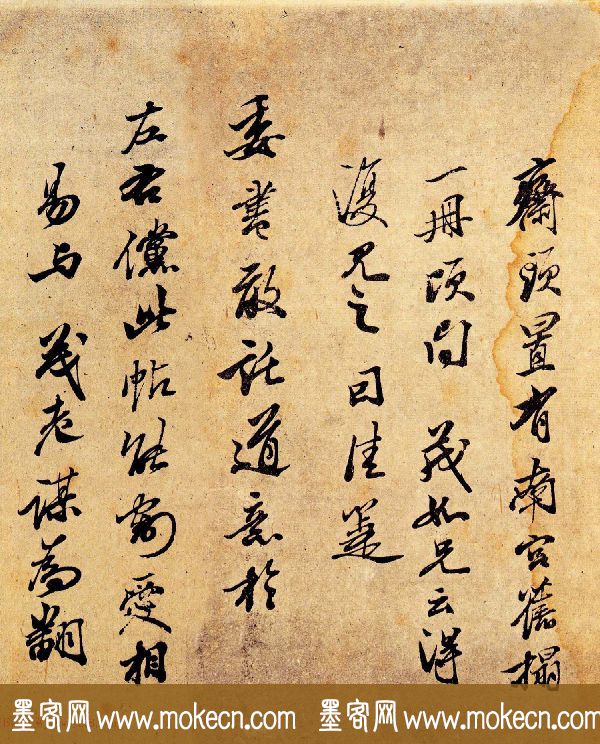 齋頭置有南宮舊搨
一冊頃向 茂如兄云浔
復見之 曰佳
委書敢託道意於
左右儻此帖能割愛相
易与 茂老謀為翻
墨客网 www.mokecn.com 墨客网 www.mokecn.com